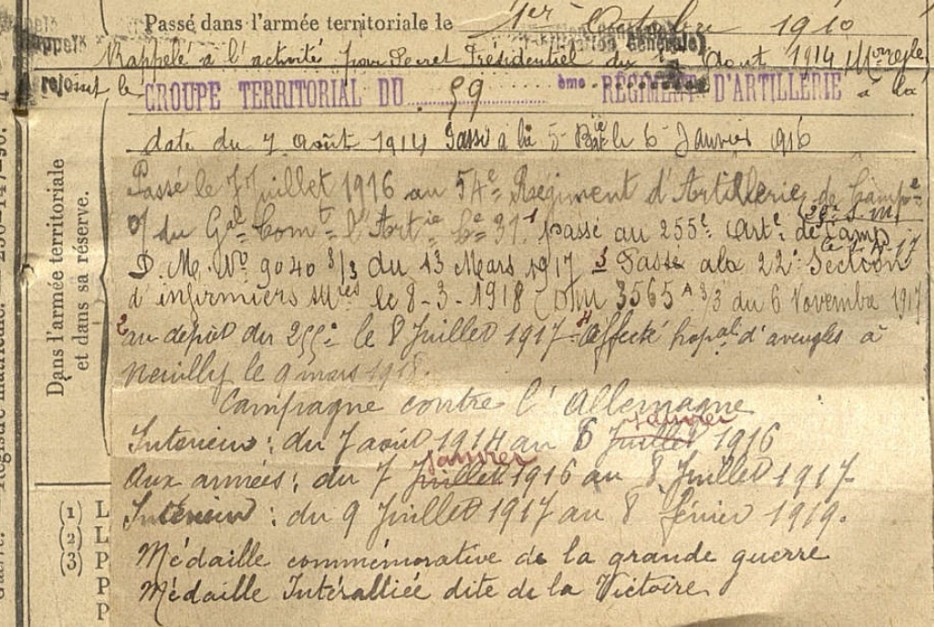 Passé dans l'armée territoriale le 1er Octobre 1910
Rappelé à l'activité par Décret Présidentiel du 1er Août 1914
rejoint le GROUPE TERRITORIAL DU 59 ème RÉGIMENT D'ARTILLERIE à la
date du 7 Août 1914 Passé à la 5e Bie le 6 Janvier 1916
Passé le 7 Juillet 1916 au 54e Régiment d'Artillerie de Campne
du Gal Comt l'Artie 1 passé au 255e Arte de Camp
D. M. No 9040 3/3 du 13 Mars 1917 3 Passé à la 22e Section
d'infirmiers mres le 8-3-1918 (DM 3565 A 3/3 du 6 Novembre 1917
2 au dépôt du 255e le 8 Juillet 1917 - 4 Affecté hopal d'aveugles à
Neuilly le 9 mars 1918.
Campagne contre l'Allemagne
janvier
Intérieur : du 7 août 1914 au 6 Juillet 1916
janvier
Aux armées : du 7 Juillet 1916 au 8 Juillet 1917-
Intérieur : du 9 Juillet 1917 au 8 février 1919.
Médaille commémorative de la grande guerre
Médaille Interalliée dite de la Victoire
Dans l'armée territoriale
et dans sa réserve.
(1) L
(2) L'
(3) P
P
P